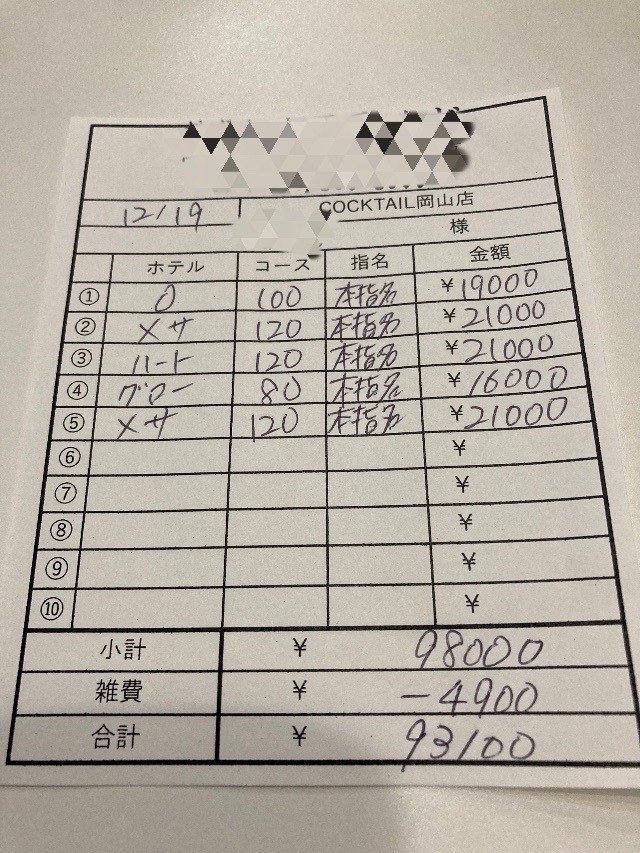 12/19
COCKTAIL岡山店
様
ホテル コース 指名 金額
① O 100 本指名 ¥19000
② メサ 120 本指名 ¥21000
③ ハート 120 本指名 ¥21000
④ グロー 80 本指名 ¥16000
⑤ メサ 120 本指名 ¥21000
⑥ ¥
⑦ ¥
⑧ ¥
⑨ ¥
⑩ ¥
小計 ¥ 98000
雑費 ¥ -4900
合計 ¥ 93100